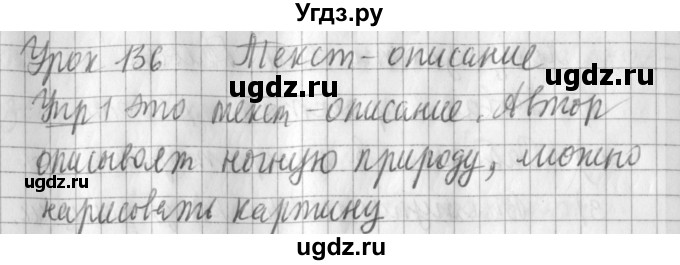 Угдз.ру
Урок 136 Текст-описание
ugdz.ru ugdz.ru
Упр 1 Это текст-описание. Автор
описывает ночную природу, можно
ugdz.ru ugdz.ru
нарисовать картину
ugdz.ru